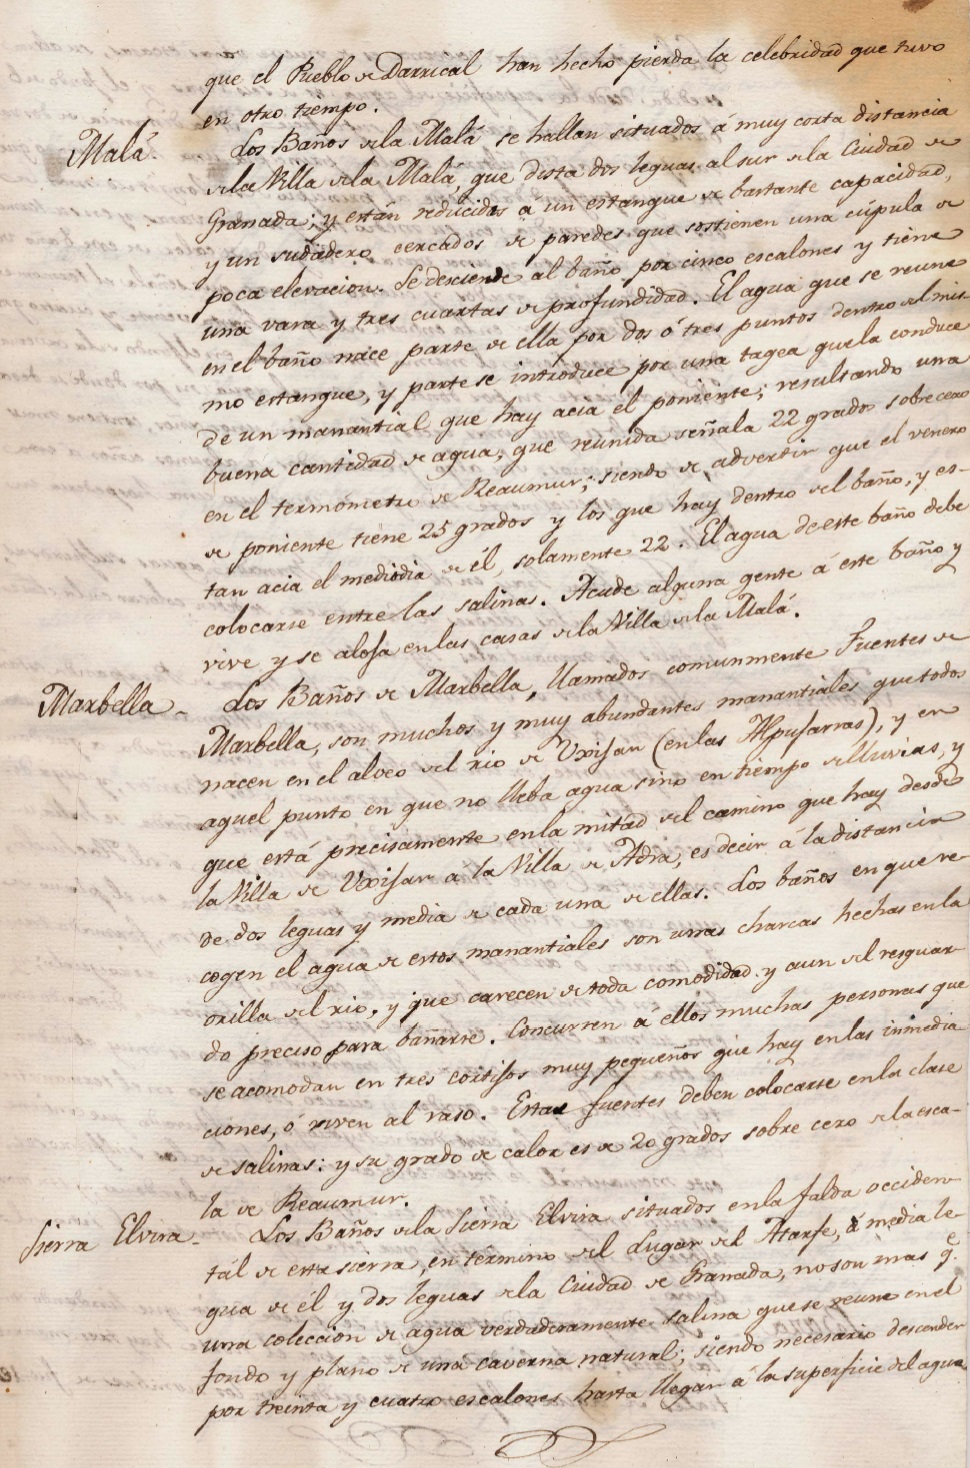 que el Pueblo de Darrical han hecho pierda la celebridad que tuvo
en otro tiempo.
Malá.
Los Baños de la Malá se hallan situados á muy corta distancia
de la Villa de la Malá, que dista dos leguas al sur de la Ciudad de
Granada; y están reducidos á un estanque de bastante capacidad,
y un sudadero cercados de paredes que sostienen una cúpula de
poca elevacion. Se desciende al baño por cinco escalones y tiene
una vara y tres cuartas de profundidad. El agua que se reune
en el baño nace parte de ella por dos ó tres puntos dentro del mis
mo estanque, y parte se introduce por una tagea que la conduce
de un manantial que hay acia el poniente; resultando una
buena cantidad de agua, que reunida señala 22 grados sobre cero
en el termometro de Reaumur; siendo de advertir que el venero
de poniente tiene 25 grados y los que hay dentro del baño, y es-
tan acia el mediodia de él, solamente 22. El agua de este baño debe
colocarse entre las salinas. Acude alguna gente á este baño y
vive y se aloja en las casas de la Villa de la Malá.
Marbella-
Los Baños de Marbella, llamados comunmente Fuentes de
Marbella, son muchos y muy abundantes manantiales que todos
nacen en el alveo del rio de Uxijar (en las Alpujarras), y en
aquel punto en que no lleba agua sino en tiempo de lluvias, y
que está precisamente en la mitad del camino que hay desde
la Villa de Uxijar a la Villa de Adra, es decir á la distancia
de dos leguas y media de cada una de ellas. Los baños en que re-
cogen el agua de estos manantiales son unas charcas hechas en la
orilla del rio, y que carecen de toda comodidad y aun del resguar-
do preciso para bañarse. Concurren á ellos muchas personas que
se acomodan en tres cortijos muy pequeños que hay en las inmedia
ciones, ó viven al raso. Estas fuentes deben colocarse en la clase
de salinas: y su grado de calor es de 20 grados sobre cero de la esca-
la de Reaumur.
Sierra Elvira-
Los Baños de la Sierra Elvira situados en la falda occiden-
tál de esta sierra, en término del Lugar del Atarfe, á media le-
gua de él y dos leguas de la Ciudad de Granada, no son mas q.e
una coleccion de agua verdaderamente salina que se reune en el
fondo y plano de una caverna natural; siendo necesario descender
por treinta y cuatro escalones hasta llegar á la superficie del agua